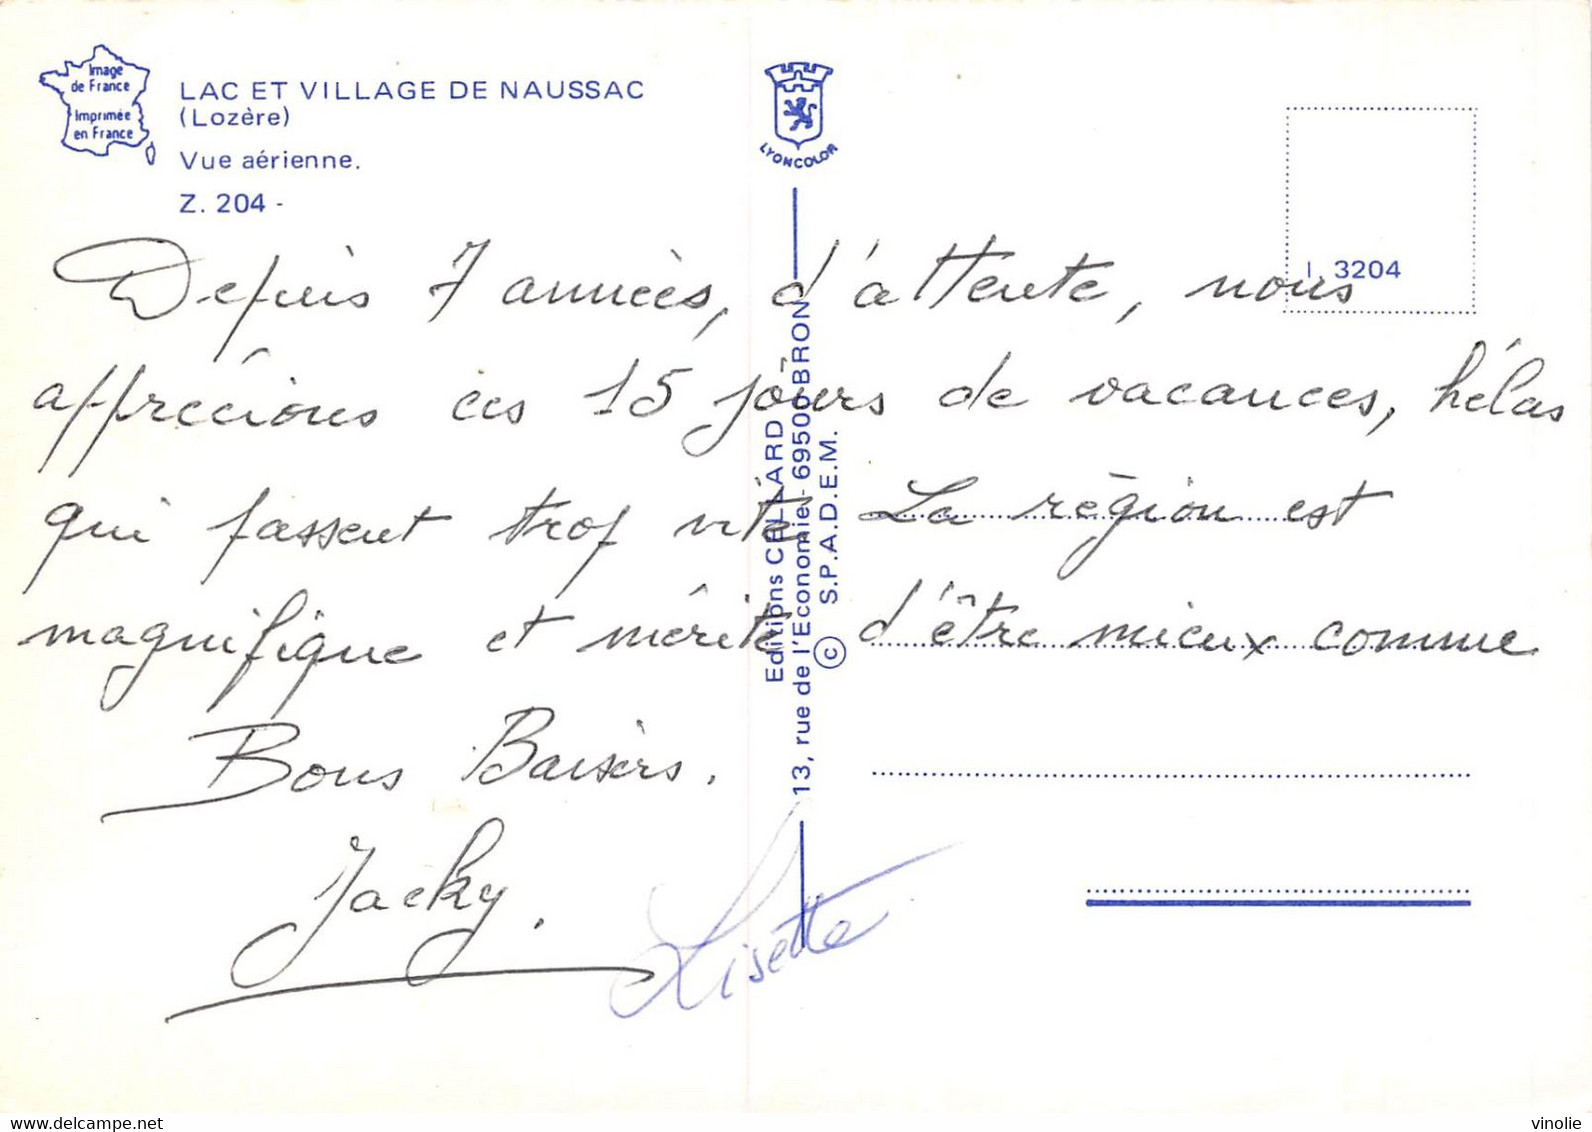 Image
de France
Imprimée
en France
LAC ET VILLAGE DE NAUSSAC
(Lozère)
Vue aérienne.
Z. 204 -
LYONCOLOR
I. 3204
Depuis 7 années, d'attente, nous
apprécions ces 15 jours de vacances, hélas
qui passent trop vite. La région est
magnifique et mérite d'être mieux comme
Bons Baisers.
Jacky.
Lisette
Editions CELLARD
13, rue de l'Economie - 69500 BRON
© S.P.A.D.E.M.
www.delcampe.net
vinolie